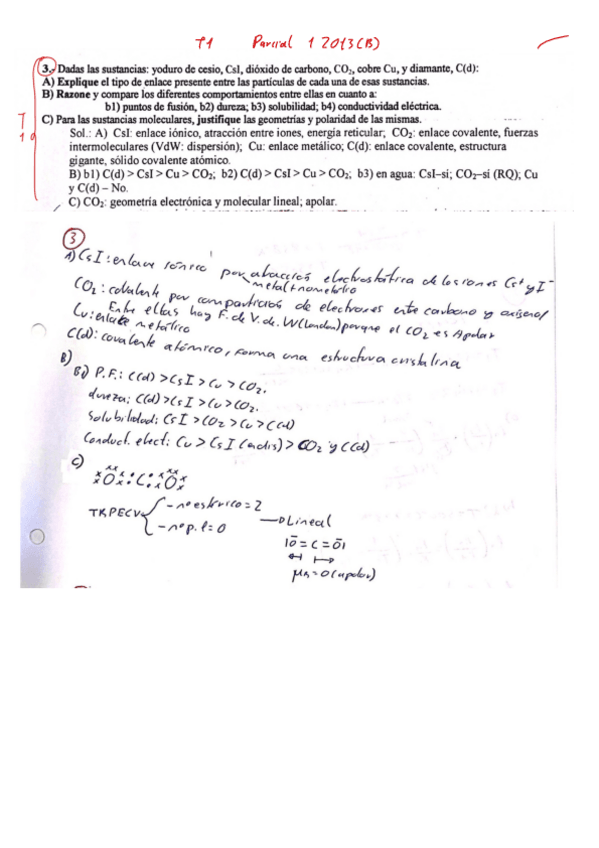 T1 Parcial 1 2013(B)
3.- Dadas las sustancias: yoduro de cesio, CsI, dióxido de carbono, CO₂, cobre Cu, y diamante, C(d):
A) Explique el tipo de enlace presente entre las partículas de cada una de esas sustancias.
B) Razone y compare los diferentes comportamientos entre ellas en cuanto a:
b1) puntos de fusión, b2) dureza; b3) solubilidad; b4) conductividad eléctrica.
C) Para las sustancias moleculares, justifique las geometrías y polaridad de las mismas.
T
1
Sol.: A) CsI: enlace iónico, atracción entre iones, energía reticular; CO₂: enlace covalente, fuerzas
intermoleculares (VdW: dispersión); Cu: enlace metálico; C(d): enlace covalente, estructura
gigante, sólido covalente atómico.
B) b1) C(d) > CsI > Cu > CO₂; b2) C(d) > CsI > Cu > CO₂; b3) en agua: CsI–si; CO₂–si (RQ); Cu
y C(d) – No.
C) CO₂: geometría electrónica y molecular lineal; apolar.
3
A) CsI: enlace iónico por atracción electrostática de los iones Cs⁺ y I⁻
metal + no metálico
CO₂: covalente por compartición de electrones entre carbono y oxígeno/
Entre ellas hay F. de V. de W (London) porque el CO₂ es Apolar
Cu: enlace metálico
C(d): covalente atómico, forma una estructura cristalina
B)
B1) P.F.: C(d) > CsI > Cu > CO₂.
dureza: C(d) > CsI > Cu > CO₂.
Solubilidad: CsI > CO₂ > Cu > C(d)
Conduct. elect: Cu > CsI > CO₂ y C(d)
C)
O : C : O
TRPECV - nº estérico = 2
- nº p.l = 0
Lineal
|O̅ = C = O̅|
μR = 0 (apolar)